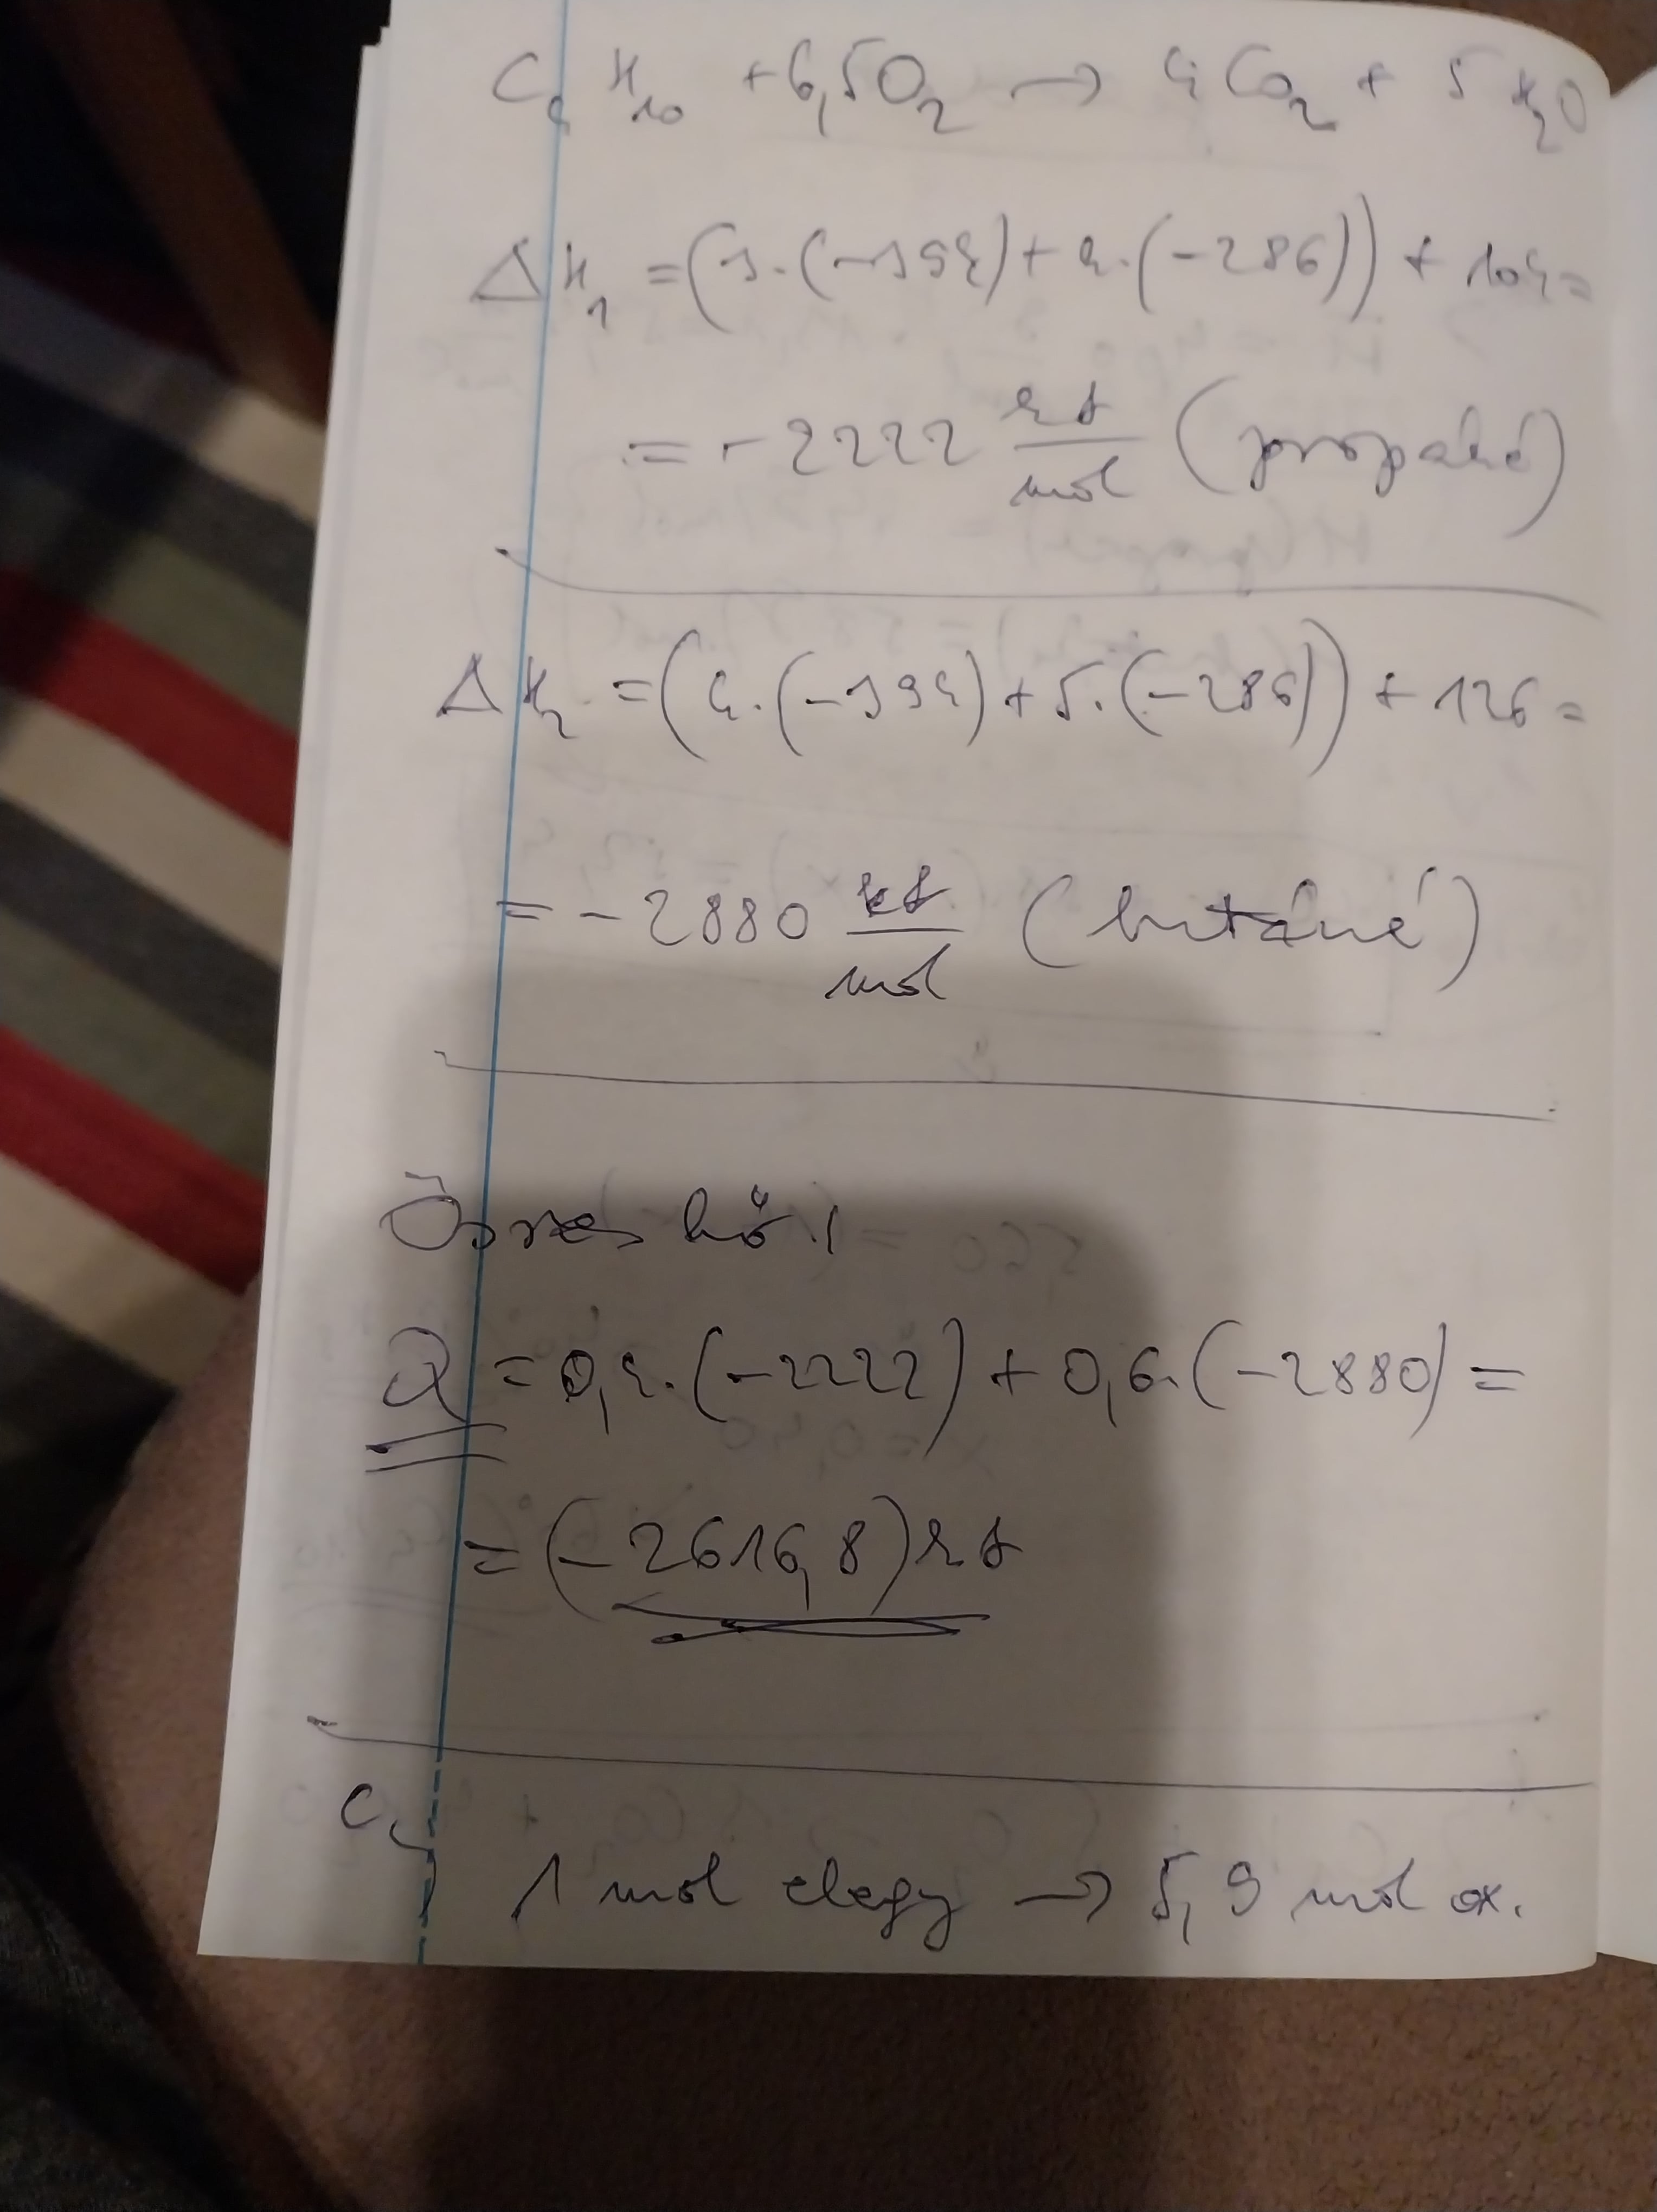 C₄H₁₀ + 6,5O₂ → 4CO₂ + 5H₂O
ΔH₁ = (3·(-394) + 4·(-286)) + 104 =
= -2222 kJ/mol (propáné)
ΔH₂ = (4·(-394) + 5·(-286)) + 126 =
= -2880 kJ/mol (butáné)
Összes hő:
Q = 0,4·(-2222) + 0,6·(-2880) =
= (-2616,8) kJ
c,
1 mol elegy → 5,9 mol ox.